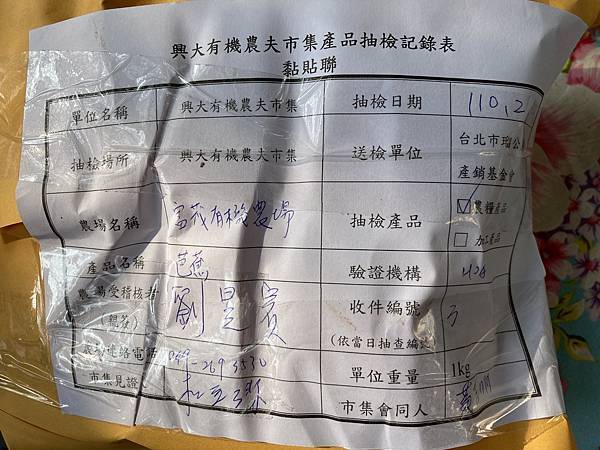 興大有機農夫市集產品抽檢記錄表
黏貼聯
單位名稱 興大有機農夫市集 抽檢日期 110.2
抽檢場所 興大有機農夫市集 送檢單位 台北市瑠公
產銷基金會
農場名稱 富茂有機農場 抽檢產品 ☑農糧產品
□加工產品
產品名稱 芭蕉 驗證機構
農場受稽核者 劉 收件編號 3
(親簽) (依當日抽查編
聯絡電話 049-2693530 單位重量 1kg
市集見證 市集會同人 黃